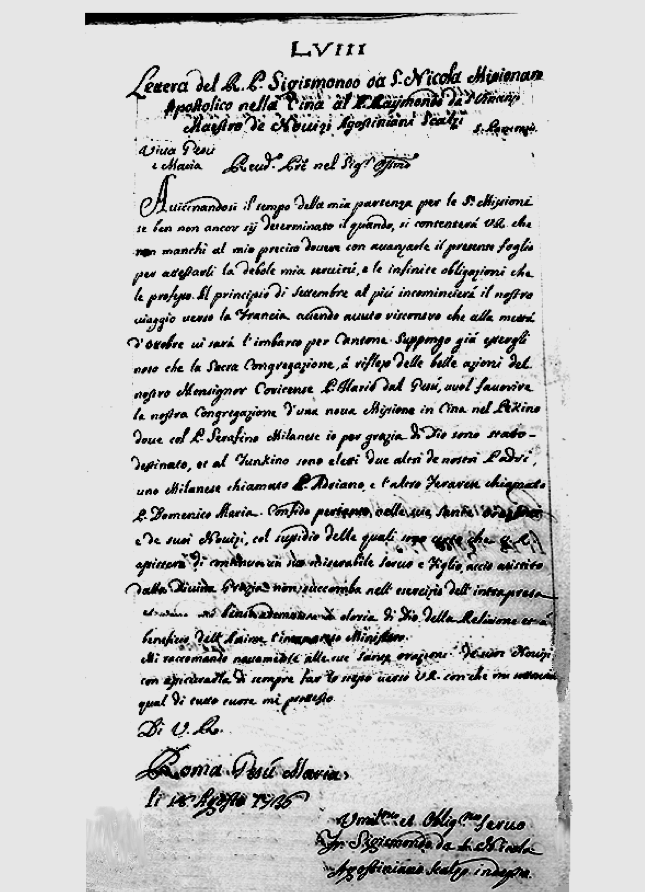 LVIII
Lettera del R. P. Sigismondo da S. Nicola Misionar
Apostolico nella Cina al P. Raymondo da S.
Maestro de Nouizi Agostiniani Scalzi
S. Lorenzo
Viua Gesù
e Maria Reud. Pre nel Sigre
Auicinandosi il tempo della mia partenza per le Ste Missioni
se ben non ancor sij determinato il quando, si contenterà V.R. che
non manchi al mio preciso douere con auanzarle il presente foglio
per attestarli la debole mia seruitù, e le infinite obligazioni che
le professo. Il principio di Settembre al più incomincierà il nostro
viaggio verso la Francia auendo auuto riscontro che alla metà
d'ottobre vi sarà l'imbarco per Cantone. Suppongo già essergli
noto che la Sacra Congregazione, à riflesso delle belle azioni del
nostro Monsignor Coricense P. Ilario dal Gesù, vuol fauorire
la nostra Congregazione d'una noua Missione in Cina nel Pekino
doue col P. Serafino Milanese io per grazia di Dio sono stato
destinato, et al Tunkino sono eletti due altri de nostri Padri,
uno Milanese chiamato P. Adriano, e l'altro chiamato
P. Domenico Maria. Confido pertanto nelle sue sante
e de suoi Nouizi, col susidio delle quali sono certo che V.R.
di miserabile Seruo e Figlio, acciò assistito
dalla Diuina Grazia non succomba nell'esercizio dell'intrapresa
gloria di Dio della Religione et à
beneficio dell'Anime l' Ministero.
Mi raccomando nouamente alle sue sante orazioni de suoi Nouizi
con di sempre far lo stesso verso V.R. con che mi
qual di tutto cuore mi protesto
Di V. R.
Roma Gesù Maria
li Agosto 1736
Umilmo et Obligmo Seruo
Fr. Sigismondo da S. Nicola
Agostiniano Scalzo indegno.